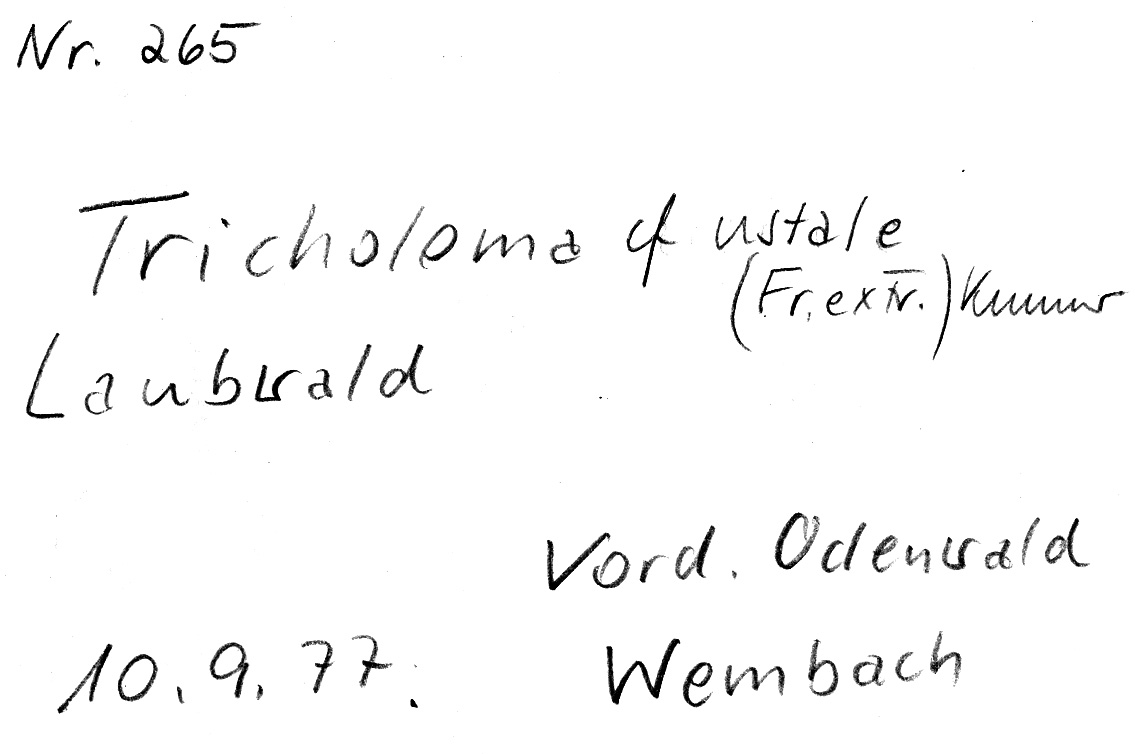 Nr. 265
Tricholoma cf ustale
(Fr. ex Fr.) Kummer
Laubwald
Vord. Odenwald
10. 9. 77. Wembach